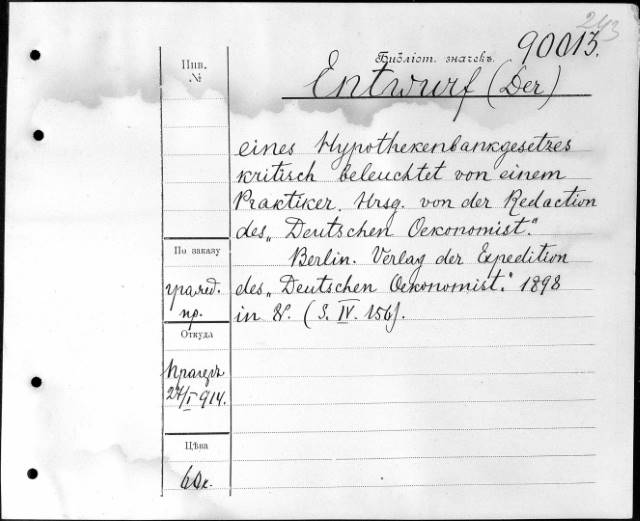 243
Библіот. значекъ. 90013.
Инв. №
Entwurf (Der)
eines Hypothekenbankgesetzes
kritisch beleuchtet von einem
Praktiker. Hrsg. von der Redaction
des „Deutschen Oekonomist."
Berlin. Verlag der Expedition
des „Deutschen Oekonomist." 1898
in 8°. (S. IV. 156).
По заказу
гражд.
пр.
Откуда
Прагеръ
27/I 914.
Цѣна